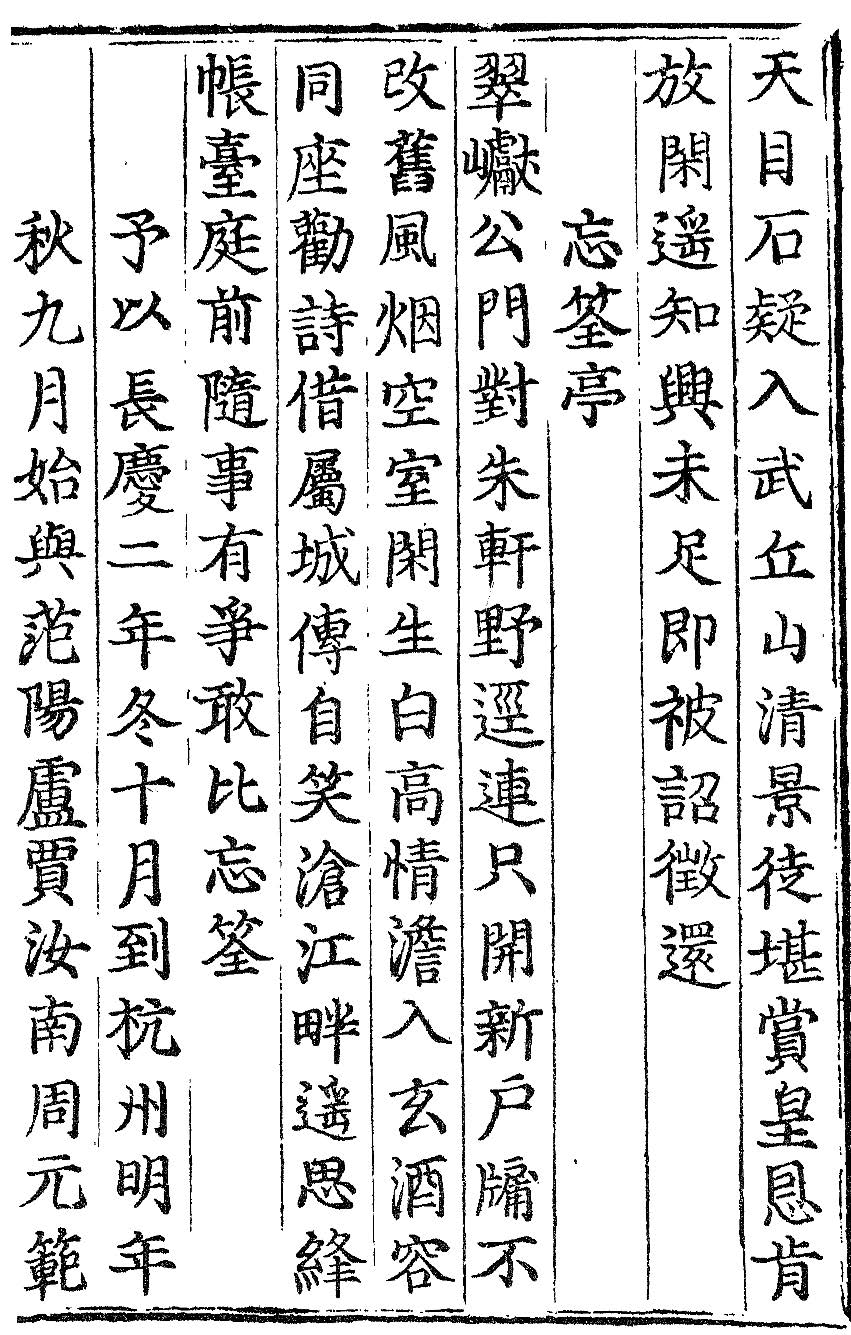 天目石疑入武丘山清景徒堪賞皇恩肯
放閑遥知興未足即被詔徵還
忘筌亭
翠巘公門對朱軒野逕連只開新戶牖不
改舊風烟空室閑生白高情澹入玄酒容
同座勸詩借屬城傳自笑滄江畔遥思絳
帳臺庭前隨事有爭敢比忘筌
予以長慶二年冬十月到杭州明年
秋九月始與范陽盧賈汝南周元範